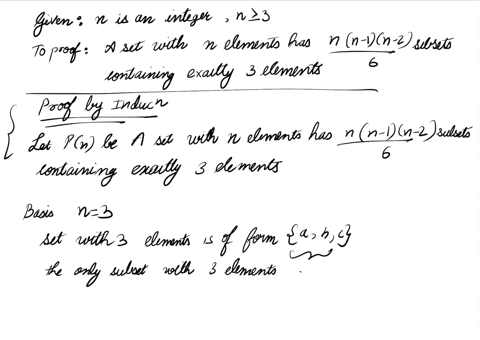 Given: n is an integer, n ≥ 3
To proof: A set with n elements has n(n-1)(n-2)/6 subsets
containing exactly 3 elements
Proof by Inducn
Let P(n) be A set with n elements has n(n-1)(n-2)/6 subsets
containing exactly 3 elements
Basis n=3
set with 3 elements is of form {a, b, c}
the only subset with 3 elements .